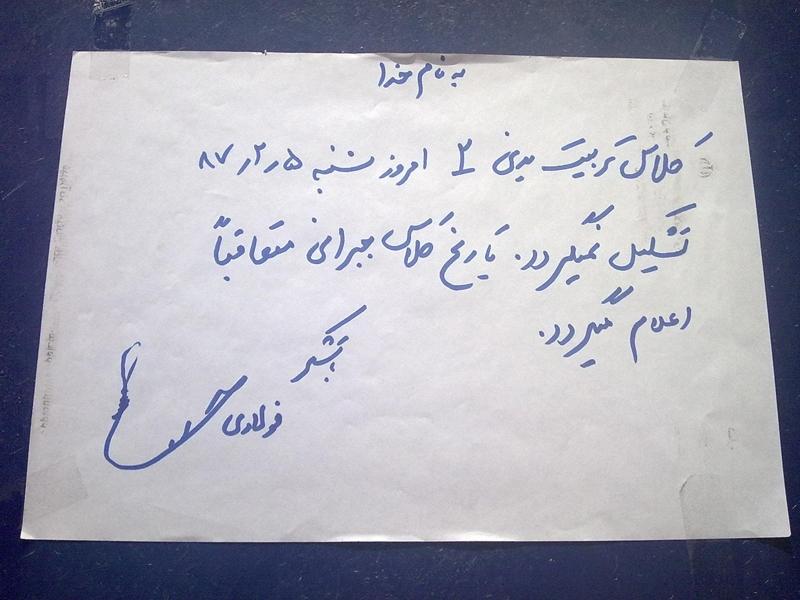 به نام خدا
کلاس تربیت بدنی ۲ امروز شنبه ۸۷٫۲٫۵
تشکیل نمیگردد. تاریخ کلاس جبرانی متعاقباً
اعلام میگردد.
باتشکر
فولادی